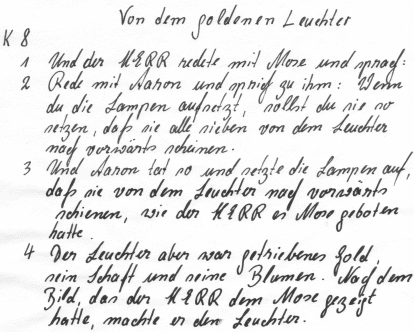 Von dem goldenen Leuchter
K 8
1 Und der HERR redete mit Mose und sprach:
2 Rede mit Aaron und sprich zu ihm: Wenn
du die Lampen aufsetzt, sollst du sie so
setzen, daß sie alle sieben von dem Leuchter
nach vorwärts scheinen.
3 Und Aaron tat so und setzte die Lampen auf,
daß sie von dem Leuchter nach vorwärts
schienen, wie der HERR es Mose geboten
hatte.
4 Der Leuchter aber war getriebenes Gold,
sein Schaft und seine Blumen. Nach dem
Bild, das der HERR dem Mose gezeigt
hatte, machte er den Leuchter.